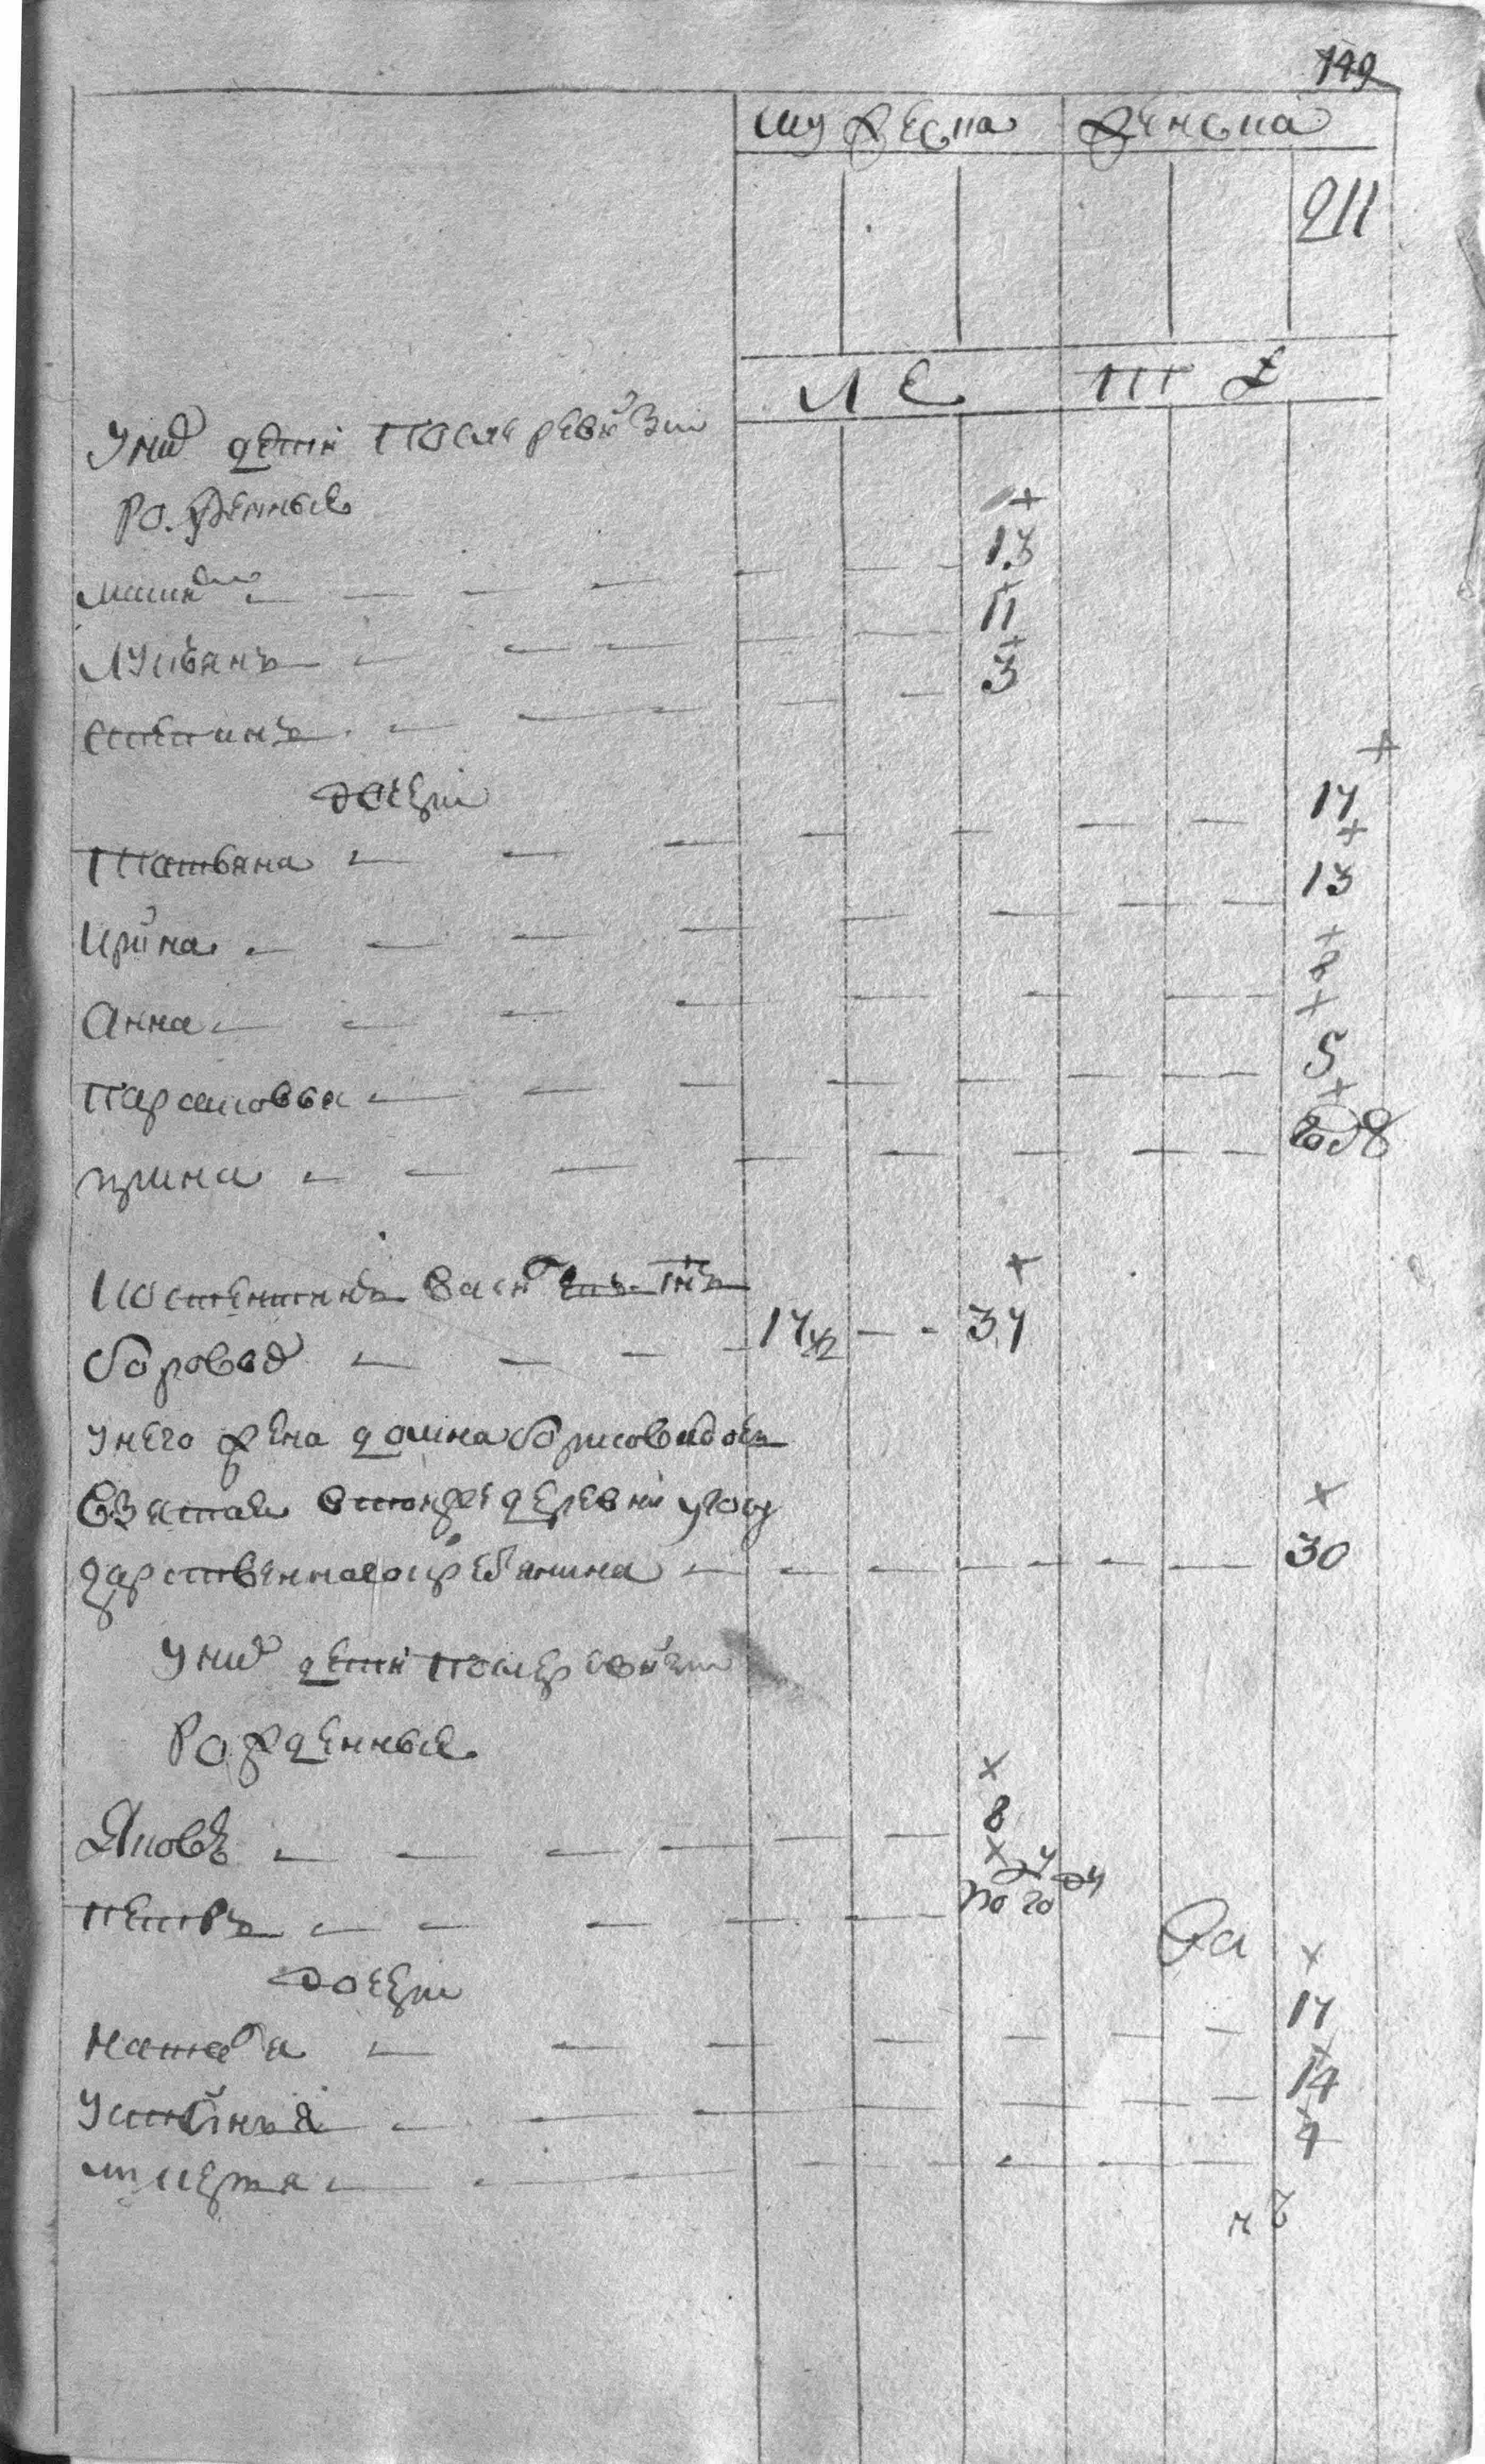 149
мужеска женска
211
у них дети после ревизии
рожденные
13
11
Лукьянъ
3
Степанъ
дочери
Татьяна 17
Ирина 13
Анна 8
Парасковья 5
Ирина году
Константинъ Василь
Боровъ 17 1/2 37
у него жена домна борисова дочь
взятая в той же деревни у госу
дарственнаго крестьянина 30
у них дети после ревизии
рожденные
Яковъ 8
Петръ по году
дочери
Наталя 17
Устинья 14
Лукерья 4